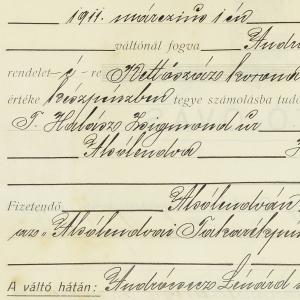 1911. március 1 én
váltónál fogva Andró
rendelet é re Kettőszáz korona
értéke készpénzben tegye számolásba tud
T. Halász Zsigmond úr
Alsólendva
Fizetendő Alsólendván
az Alsólendvai Takarékpén
A váltó hátán: Andróvecz Lénárd